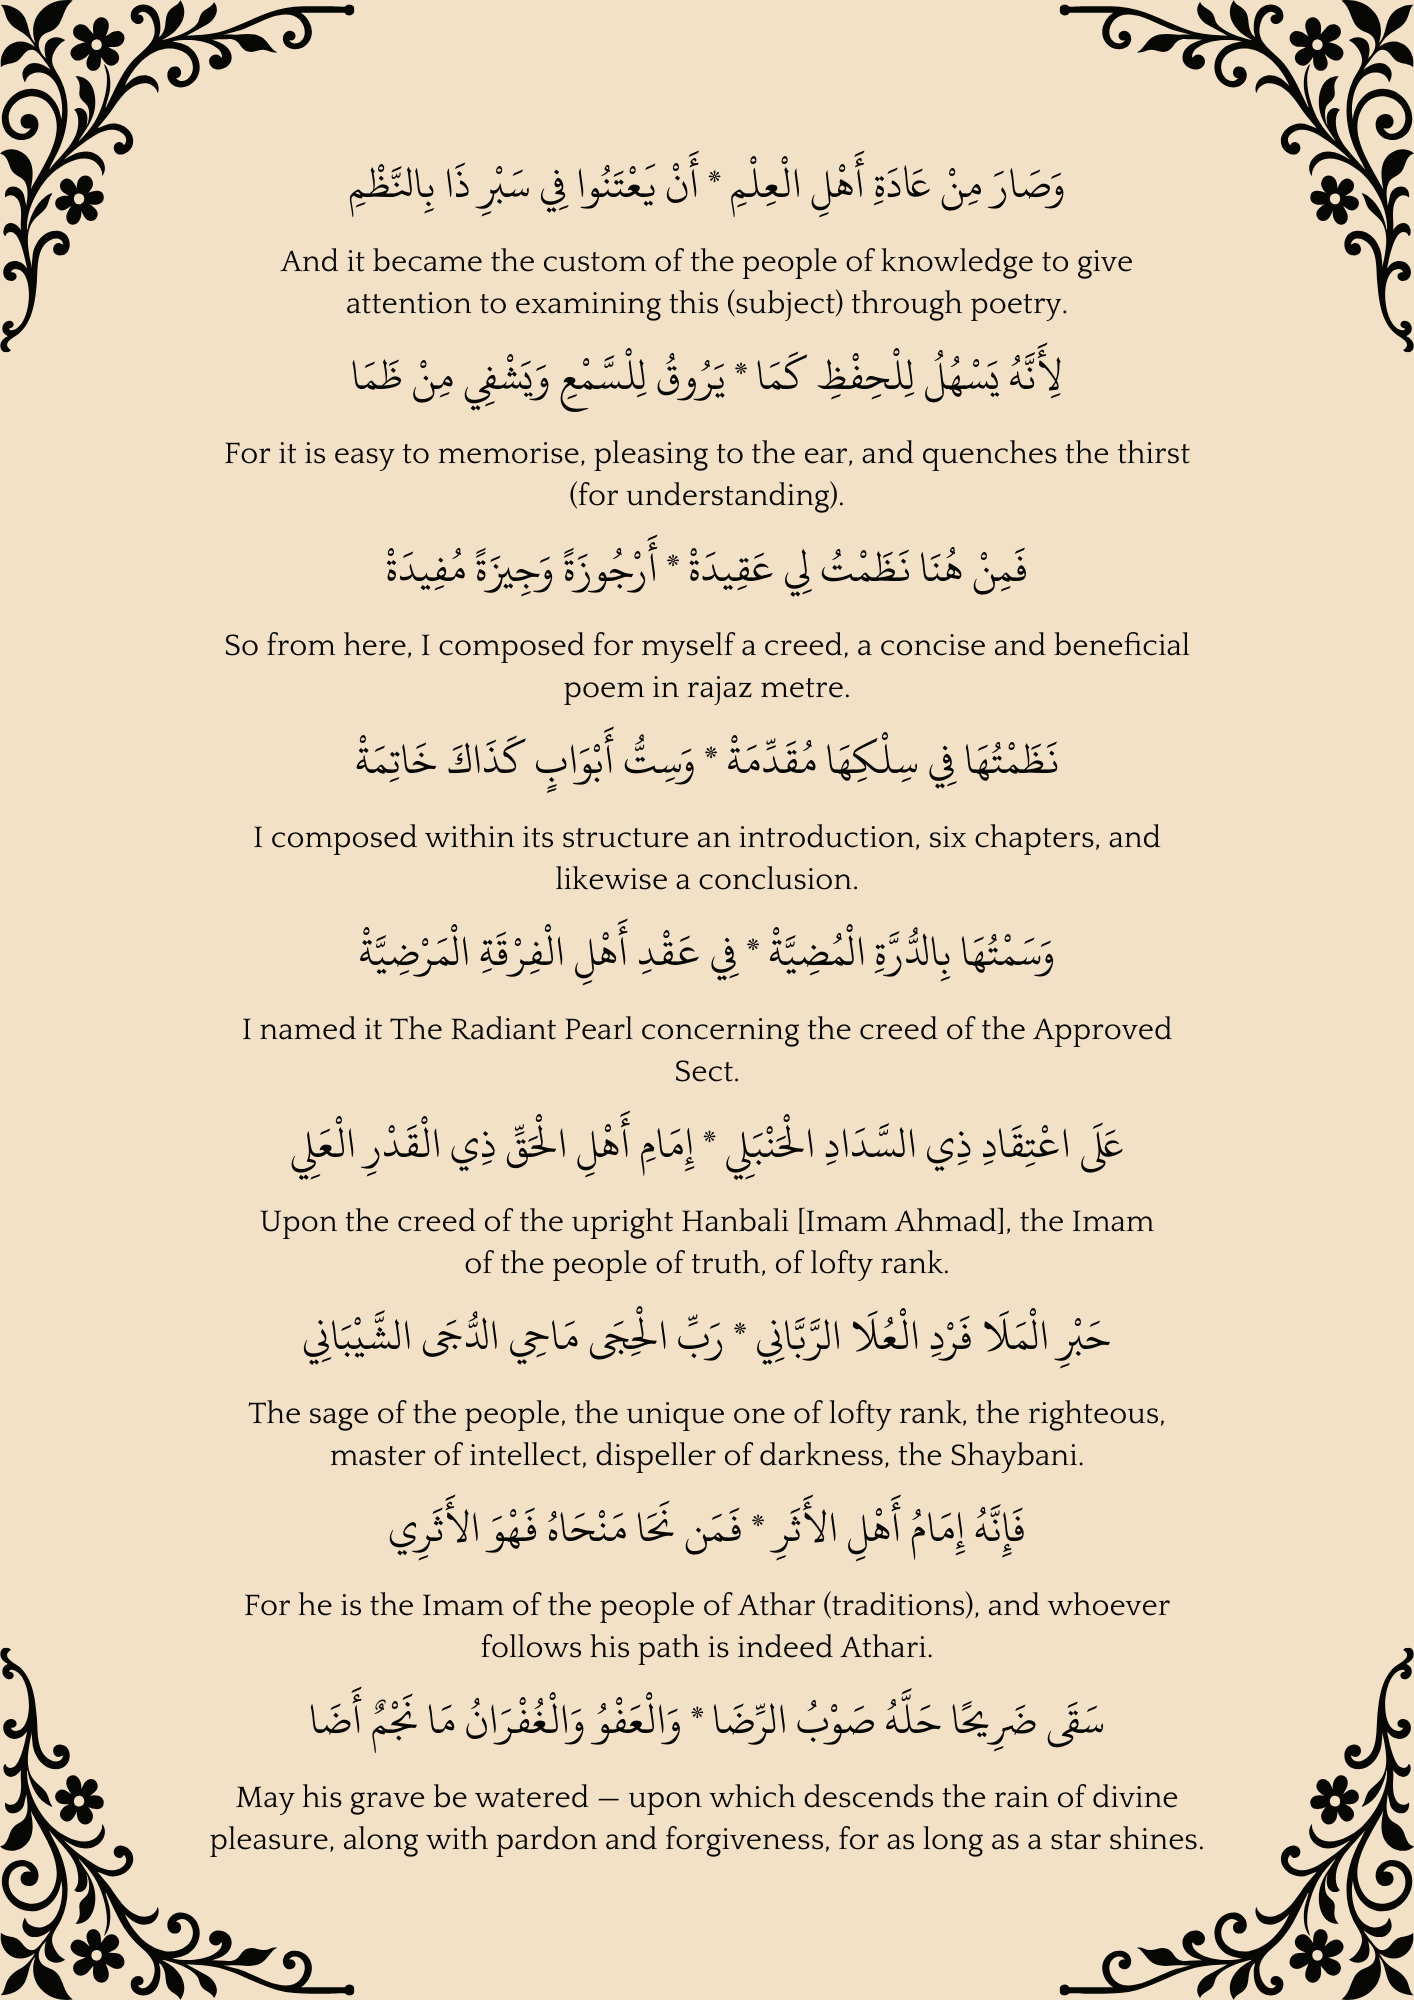 وَصَارَ مِنْ عَادَةِ أَهْلِ الْعِلْمِ * أَنْ يَعْتَنُوا فِي سَبْرِ ذَا بِالنَّظْمِ
And it became the custom of the people of knowledge to give
attention to examining this (subject) through poetry.
لِأَنَّهُ يَسْهُلُ لِلْحِفْظِ كَمَا * يَرُوقُ لِلسَّمْعِ وَيَشْفِي مِنْ ظَمَا
For it is easy to memorise, pleasing to the ear, and quenches the thirst
(for understanding).
فَمِنْ هُنَا نَظَمْتُ لِي عَقِيدَةْ * أَرْجُوزَةً وَجِيزَةً مُفِيدَةْ
So from here, I composed for myself a creed, a concise and beneficial
poem in rajaz metre.
نَظَمْتُهَا فِي سِلْكِهَا مُقَدِّمَةْ * وَسِتُّ أَبْوَابٍ كَذَاكَ خَاتِمَةْ
I composed within its structure an introduction, six chapters, and
likewise a conclusion.
وَسَمْتُهَا بِالدُّرَّةِ الْمُضِيَّةْ * فِي عَقْدِ أَهْلِ الْفِرْقَةِ الْمَرْضِيَّةْ
I named it The Radiant Pearl concerning the creed of the Approved
Sect.
عَلَى اعْتِقَادِ ذِي السَّدَادِ الْحَنْبَلِي * إِمَامِ أَهْلِ الْحَقِّ ذِي الْقَدْرِ الْعَلِي
Upon the creed of the upright Hanbali [Imam Ahmad], the Imam
of the people of truth, of lofty rank.
حَبْرِ الْمَلَا فَرْدِ الْعُلَا الرَّبَّانِي * رَبِّ الْحِجَى مَاحِي الدُّجَى الشَّيْبَانِي
The sage of the people, the unique one of lofty rank, the righteous,
master of intellect, dispeller of darkness, the Shaybani.
فَإِنَّهُ إِمَامُ أَهْلِ الأَثَرِ * فَمَن نَحَا مَنْحَاهُ فَهْوَ الأَثَرِي
For he is the Imam of the people of Athar (traditions), and whoever
follows his path is indeed Athari.
سَقَى ضَرِيحًا حَلَّهُ صَوْبُ الرِّضَا * وَالْعَفْوُ وَالْغُفْرَانُ مَا نَجْمٌ أَضَا
May his grave be watered — upon which descends the rain of divine
pleasure, along with pardon and forgiveness, for as long as a star shines.